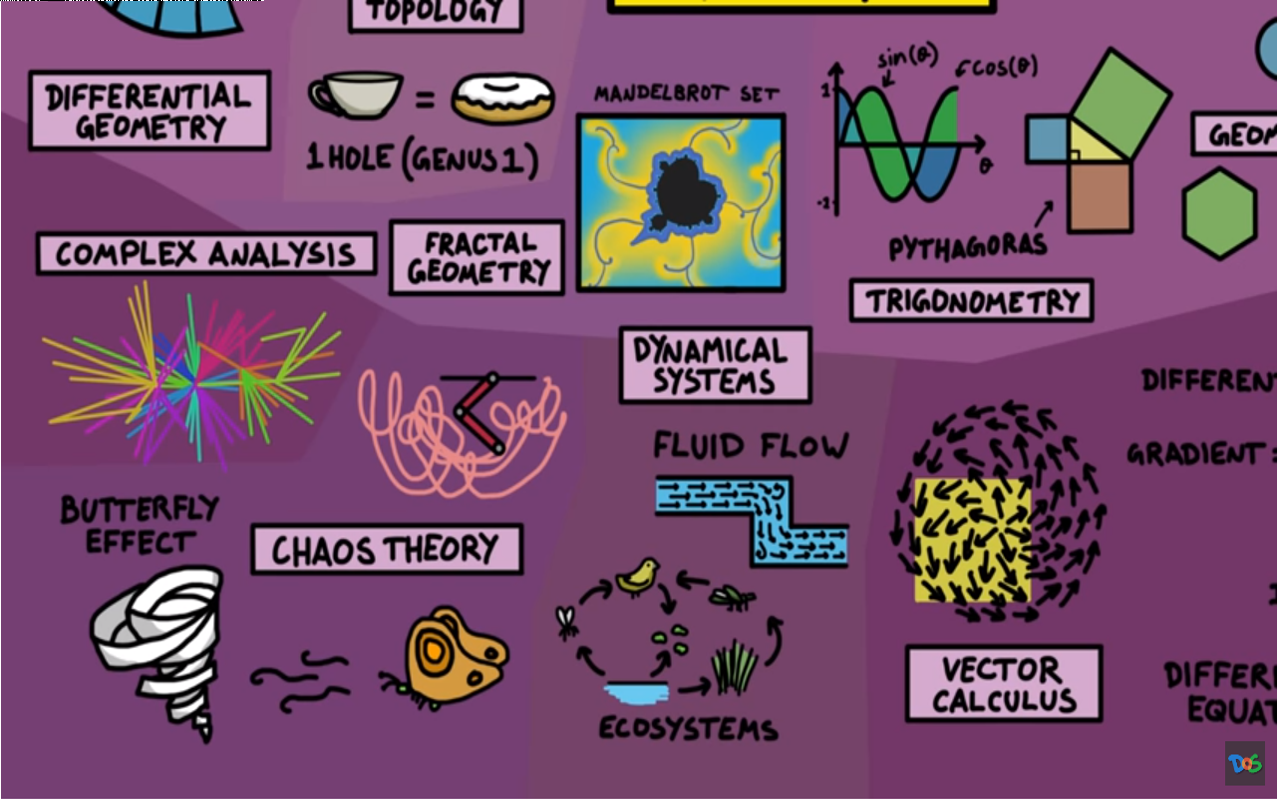 TOPOLOGY
DIFFERENTIAL
GEOMETRY
=
1 HOLE (GENUS 1)
MANDELBROT SET
sin(θ)
cos(θ)
1
-1
θ
PYTHAGORAS
TRIGONOMETRY
GEOM
COMPLEX ANALYSIS
FRACTAL
GEOMETRY
DYNAMICAL
SYSTEMS
FLUID FLOW
DIFFEREN
GRADIENT =
BUTTERFLY
EFFECT
CHAOS THEORY
ECOSYSTEMS
VECTOR
CALCULUS
DIFFER
EQUAT
DOS